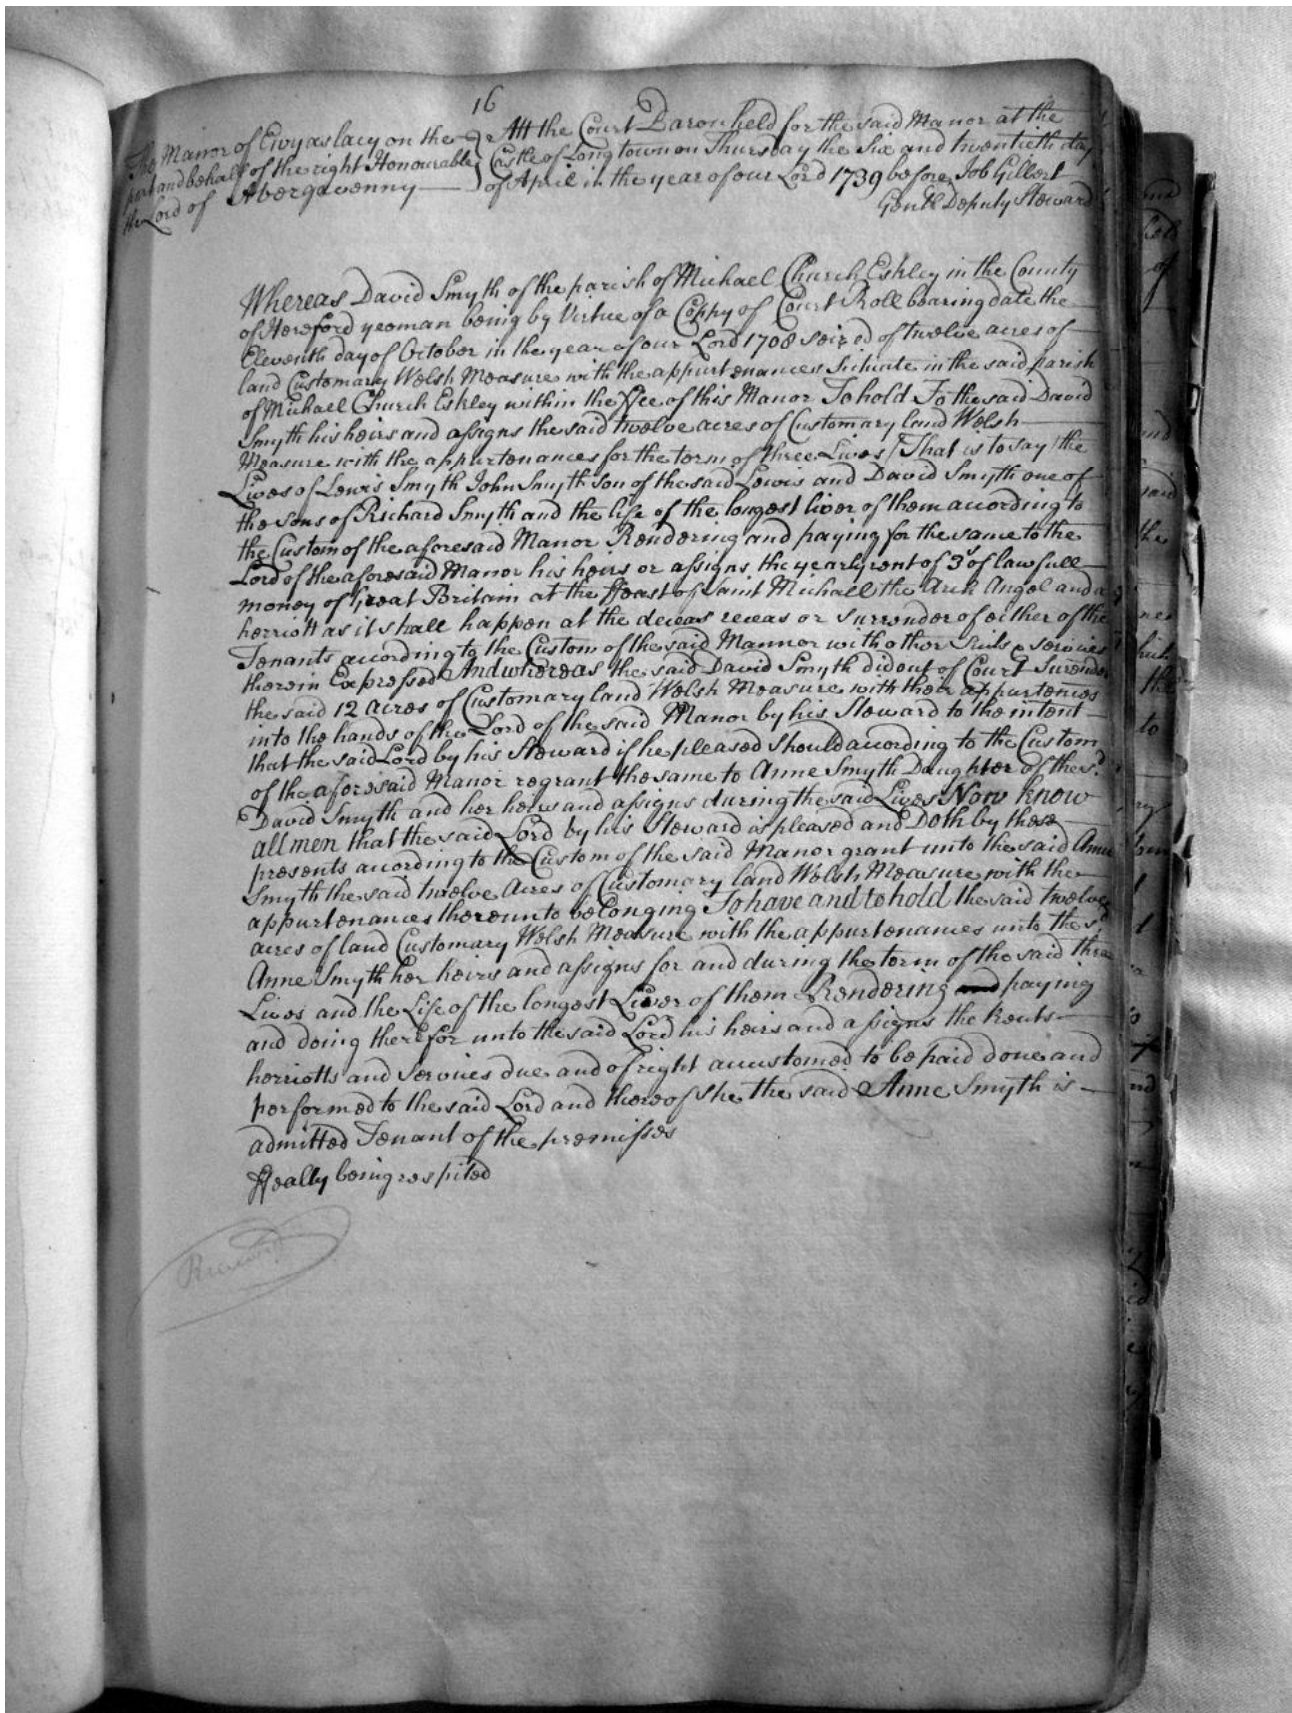 16
The Manor of Ewyaslacy on the
part and behalf of the right Honourable
the Lord of Abergavenny
Att the Court Baron held for the said Manor at the
Castle of Longtown on Thursday the Six and twentieth day
of April in the year of our Lord 1739 before Job Gillert
Gentl Deputy Steward
Whereas David Smyth of the parish of Michael Church Eskley in the County
of Hereford yeoman being by Virtue of a Coppy of Court Roll bearing date the
Eleventh day of October in the year of our Lord 1708 seized of twelve acres of
land Customary Welsh Measure with the appurtenances Situate in the said parish
of Michael Church Eskley within the ffee of this Manor To hold To the said David
Smyth his heirs and assigns the said twelve acres of Customary land Welsh
Measure with the appurtenances for the term of three Lives (That is to say) the
Lives of Lewis Smyth John Smyth son of the said Lewis and David Smyth one of
the sons of Richard Smyth and the life of the longest liver of them according to
the Custom of the aforesaid Manor Rendering and paying for the same to the
Lord of the aforesaid Manor his heirs or assigns the yearly rent of 3s of lawfull
money of Great Britain at the ffeast of Saint Michall the Arch Angel and a
herriott as it shall happen at the deceas receas or surrender of either of the
Tenants according to the Custom of the said Mannor with other Suits & services
therein Expressed And whereas the said David Smyth did out of Court Surender
the said 12 acres of Customary land Welsh Measure with their appurtences
into the hands of the Lord of the said Manor by his Steward to the intent
that the said Lord by his Steward if he pleased should acording to the Custom
of the aforesaid Manor regrant the same to Anne Smyth Daughter of the sd
David Smyth and her heirs and assigns during the said Lives Now know
all men that the said Lord by his Steward is pleased and Doth by these
presents acording to the Custom of the said Manor grant unto the said Anne
Smyth the said twelve Acres of Customary land Welsh Measure with the
appurtenances thereunto belonging To have and to hold the said twelve
acres of land Customary Welsh Measure with the appurtenances unto the sd
Anne Smyth her heirs and assigns for and during the term of the said three
Lives and the Life of the longest Liver of them Rendering and paying
and doing therefor unto the said Lord his heirs and assigns the Rents
herriotts and Services due and of right accustomed to be paid done and
performed to the said Lord and thereof she the said Anne Smyth is
admitted Tenant of the premisses
ffealty being respited